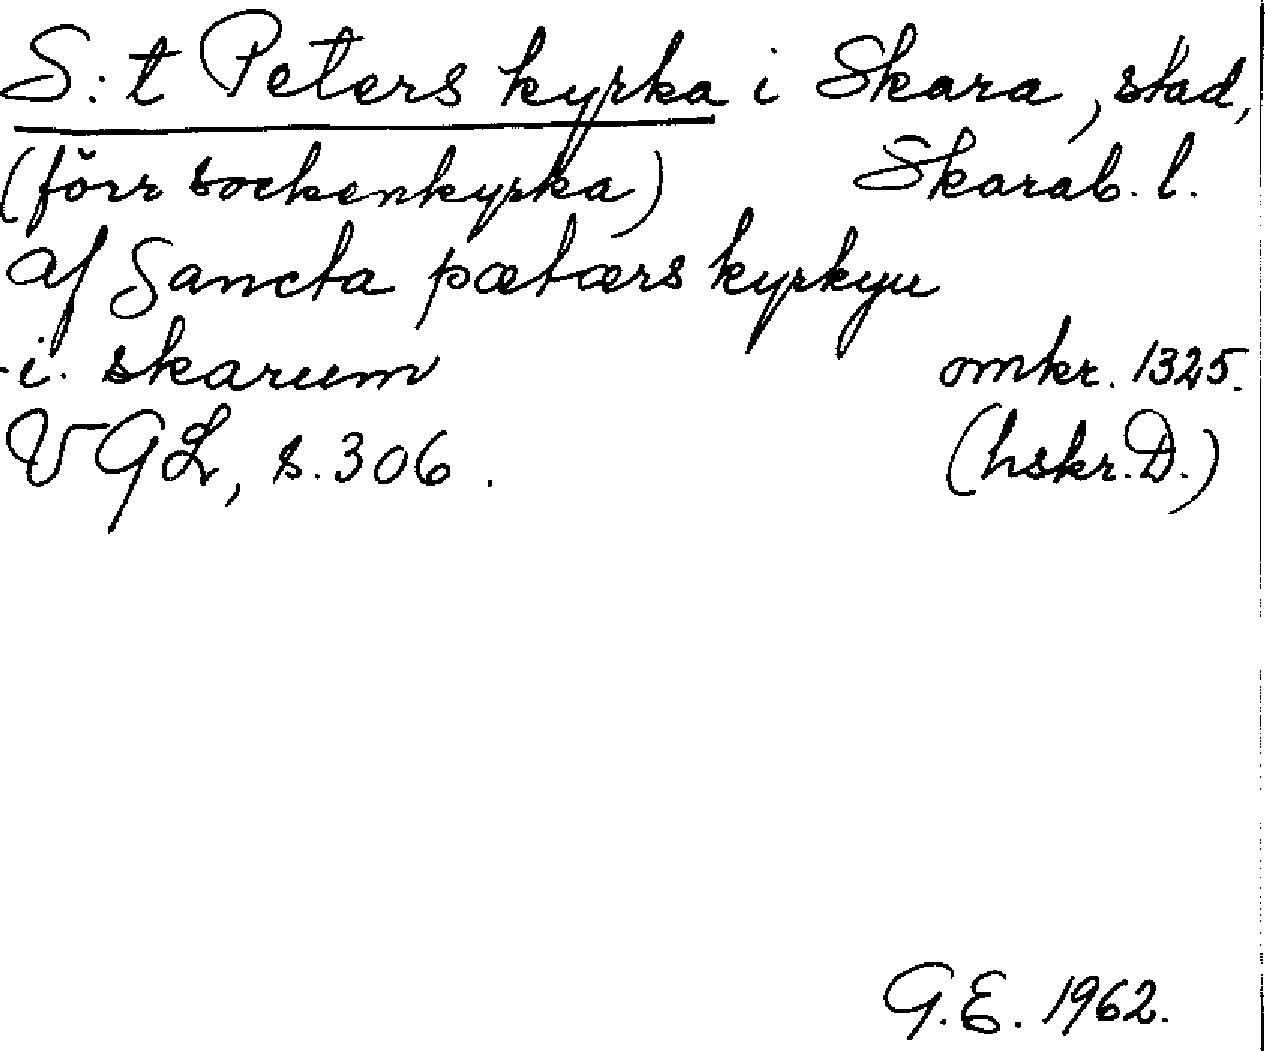 S:t Peters kyrka i Skara, stad,
(förr sockenkyrka) Skarab. l.
af Sancta pætærs kyrkyu
.i. skarum omkr. 1325.
VGL, s. 306. (hskr. D.)
G.E. 1962.